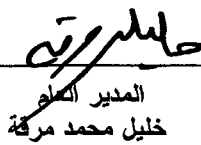 المدير العام
خليل محمد مرقة